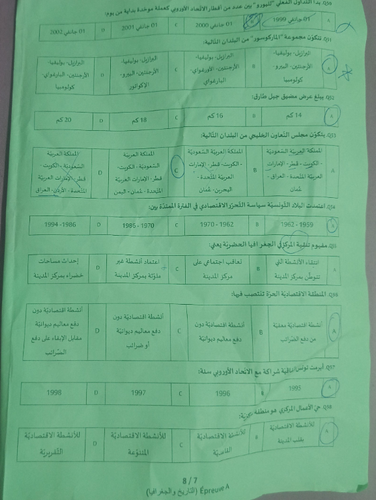 Q30 بدأ التداول الفعلي "لليورو" بين عدد من أقطار الاتحاد الأوروبي كعملة موحدة بداية من يوم:
01 جانفي 1999
B
01 جانفي 2000
C
01 جانفي 2001
D
01 جانفي 2002
تتكوّن مجموعة "الماركوسور" من البلدان التالية:
A
البرازيل- بوليفيا
الأرجنتين- البيرو-
كولومبيا
B
البرازيل- بوليفيا
الأرجنتين- الأوروغواي-
الباراغواي
C
البرازيل- بوليفيا
الأرجنتين- البيرو-
الإكواتور
D
البرازيل- بوليفيا
الأرجنتين- الباراغواي
كولومبيا
يبلغ عرض مضيق جبل طارق:
A
14 كم
B
16 كم
C
18 كم
D
20 كم
يتكوّن مجلس التعاون الخليجي من البلدان التالية:
A
المملكة العربيّة السّعوديّة
- الكويت- قطر- الإمارات
العربيّة المتحدة - العراق-
عُمان
B
المملكة العربيّة السّعوديّة
- الكويت- قطر- الإمارات
العربيّة المتحدة -
البحرين- عُمان
C
المملكة العربيّة
السّعوديّة - الكويت-
قطر- الإمارات العربيّة
المتحدة- عُمان- اليمن
D
المملكة العربيّة
السّعوديّة - الكويت-
قطر- الإمارات العربيّة
المتحدة- الأردن- العراق
اعتمدت البلاد التّونسيّة سياسة التّحرّر الاقتصادي في الفترة الممتدّة بين:
A
1959-1962
B
1962-1970
C
1970-1985
D
1986-1994
مفهوم تنقية المركز في الجغرافيا الحضريّة يعني:
A
انتقاء الأنشطة التي
تتوطّن بمركز المدينة
B
تعاقب اجتماعي على
مركز المدينة
C
اعتماد أنشطة غير
ملوّثة بمركز المدينة
D
إحداث مساحات
خضراء بمركز المدينة
المنطقة الاقتصاديّة الحرّة تنتصب فيها:
A
أنشطة اقتصاديّة معفيّة
من دفع الضّرائب
B
أنشطة اقتصاديّة دون
دفع معاليم ديوانيّة
C
أنشطة اقتصاديّة دون
دفع معاليم ديوانيّة
أو ضرائب
D
أنشطة اقتصاديّة دون
دفع معاليم ديوانيّة
مقابل الإبقاء على دفع
الضّرائب
أبرمت تونس اتفاقية شراكة مع الاتحاد الأوروبي سنة:
A
1995
B
1996
C
1997
D
1998
حي الأعمال المركزي هو منطقة قويّة:
A
للأنشطة الاقتصاديّة
بقلب المدينة
B
للأنشطة الاقتصاديّة
القاعديّة
C
للأنشطة الاقتصاديّة
المتنوّعة
D
للأنشطة الاقتصاديّة
التّقريريّة
8 / 7
Epreuve A (التاريخ والجغرافيا)